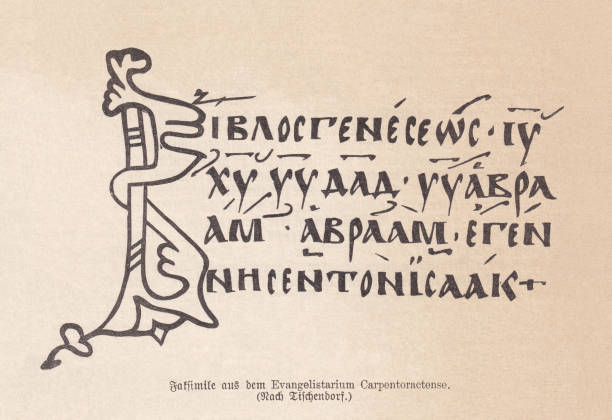 ΒΙΒΛΟϹΓΕΝΈϹΕѠϹ · ΙΥ̅
ΧΥ̅ ΥΥ̅ ΔΑ̅Δ · ΥΥ̅ ἈΒΡΑ
ᾺΜ · ἈΒΡΑᾺΜ · ἘΓΈΝ
ΝΗϹΕΝΤΟΝΪϹΑᾺΚ +
Faksimile aus dem Evangelistarium Carpentoractense.
(Nach Tischendorf.)